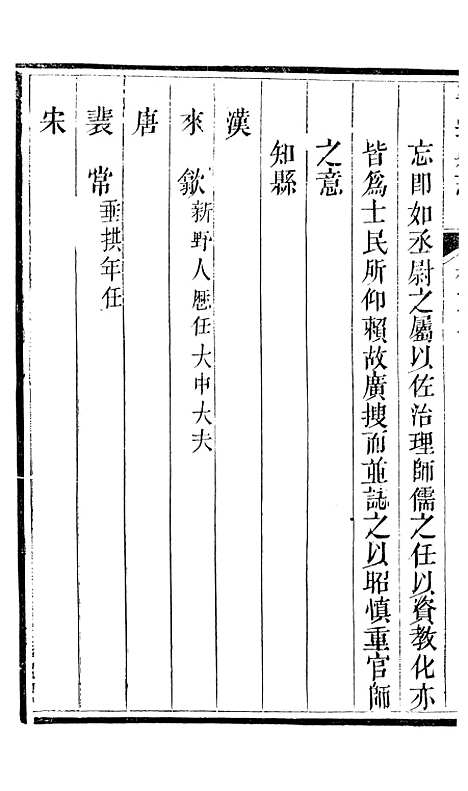 忘即如丞尉之屬以佐治理師儒之任以資教化亦
皆爲士民所仰賴故廣搜而並誌之以昭愼重官師
之意
知縣
漢
來歙新野人歷任大中大夫
唐
裴常垂拱年任
宋